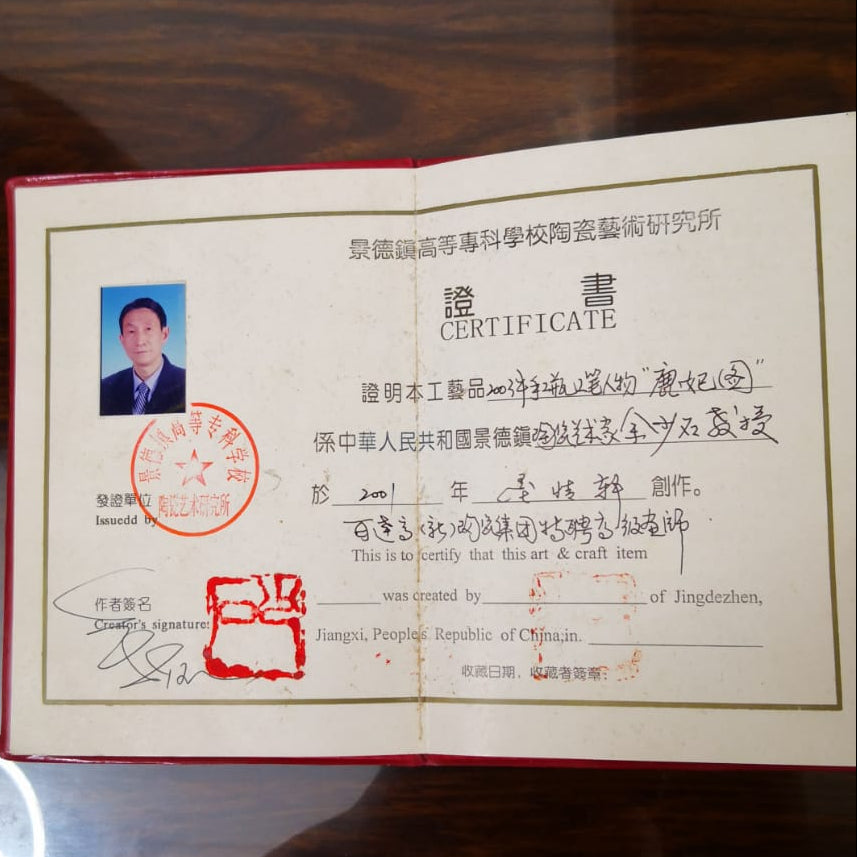 景德鎮高等專科學校陶瓷藝術研究所
證 書
CERTIFICATE
證明本工藝品 人物"鹿 图"
係中華人民共和國景德鎮陶瓷美术家余少石教授
於 2001 年 轩 創作。
百達高(新)陶瓷集团特聘高级画师
This is to certify that this art & craft item
was created by of Jingdezhen,
Jiangxi, People's Republic of China,in.
收藏日期, 收藏者簽章:
景德镇高等专科学校
陶瓷艺术研究所
發證單位
Issuedd by
作者簽名
Creator's signature: